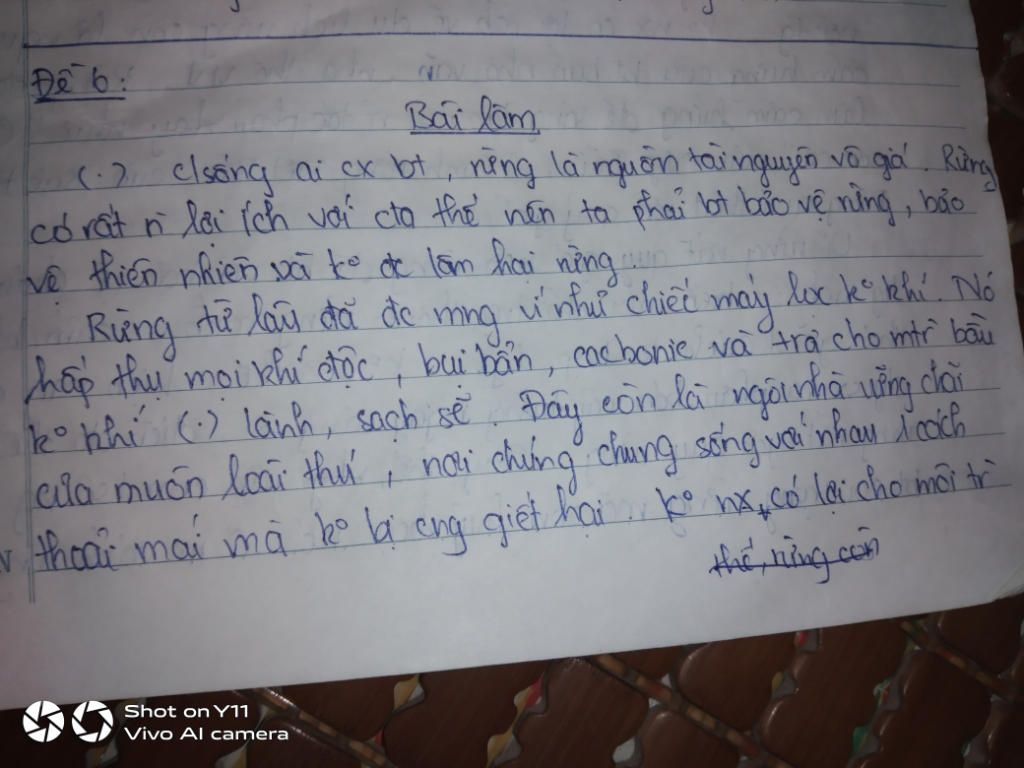 Đề 6:
Bài làm
(.) c/sống ai cx bt, rừng là nguồn tài nguyên vô giá. Rừng
có rất n lợi ích với cta thế nên ta phải bt bảo vệ rừng, bảo
vệ thiên nhiên và k° đc làm hại rừng.
Rừng từ lâu đã đc mng ví như chiếc máy lọc k° khí. Nó
hấp thụ mọi khí độc, bụi bẩn, cacbonic và trả cho mtr bầu
k° khí (.) lành, sạch sẽ. Đây còn là ngôi nhà vững chãi
của muôn loài thú, nơi chúng chung sống với nhau 1 cách
thoải mái mà k° bị cng giết hại. k° nx, có lợi cho môi tr
thế, rừng còn
Shot on Y11
Vivo AI camera